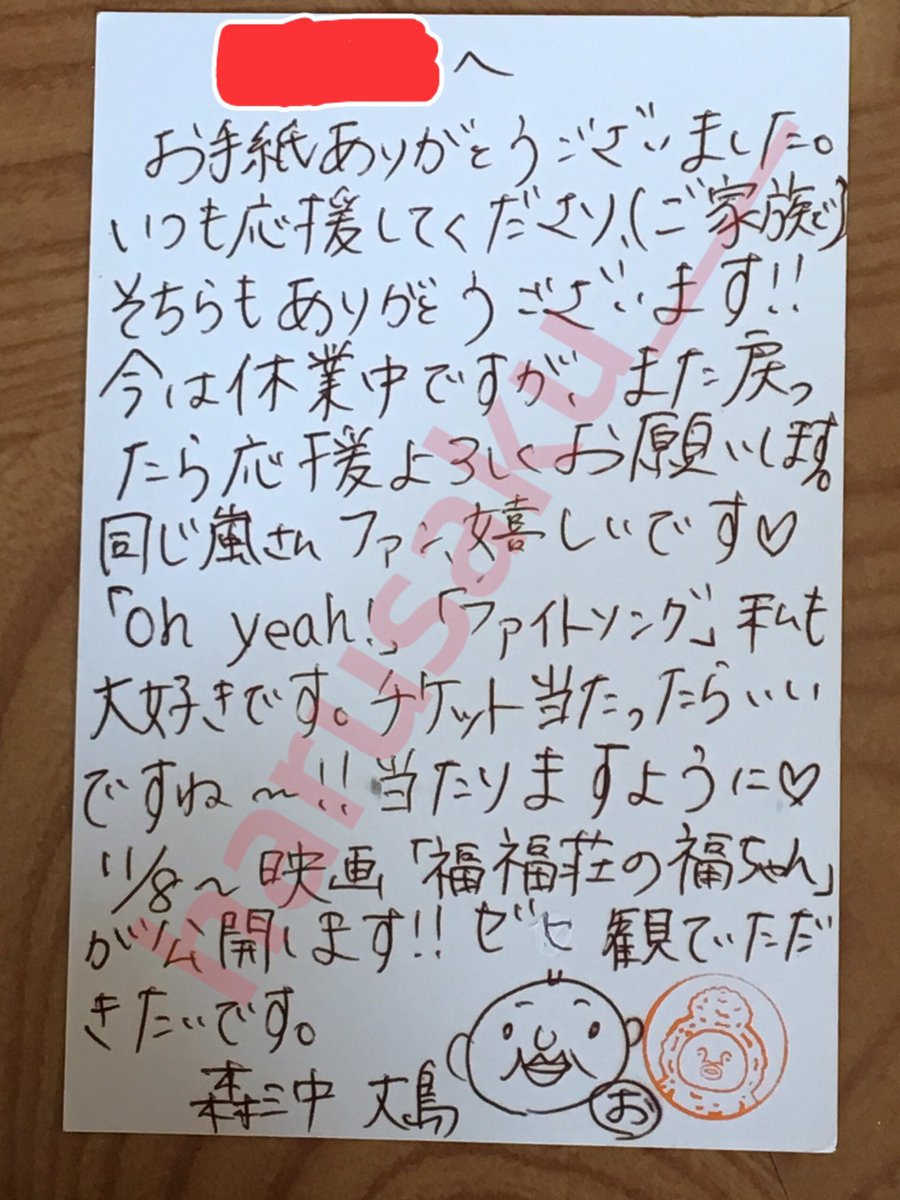 へ
お手紙ありがとうございました。
いつも応援してくださり、(ご家族で)
そちらもありがとうございます!!
今は休業中ですが、また戻っ
たら応援よろしくお願いします。
同じ嵐さんファン、嬉しいです♡
「Oh yeah!」「ファイトソング」私も
大好きです。チケット当たったらいい
ですね〜!!当たりますように♡
11/8〜映画「福福荘の福ちゃん」
が公開します!!ゼヒ観ていただ
きたいです。
森三中 大島
お
harusaku___